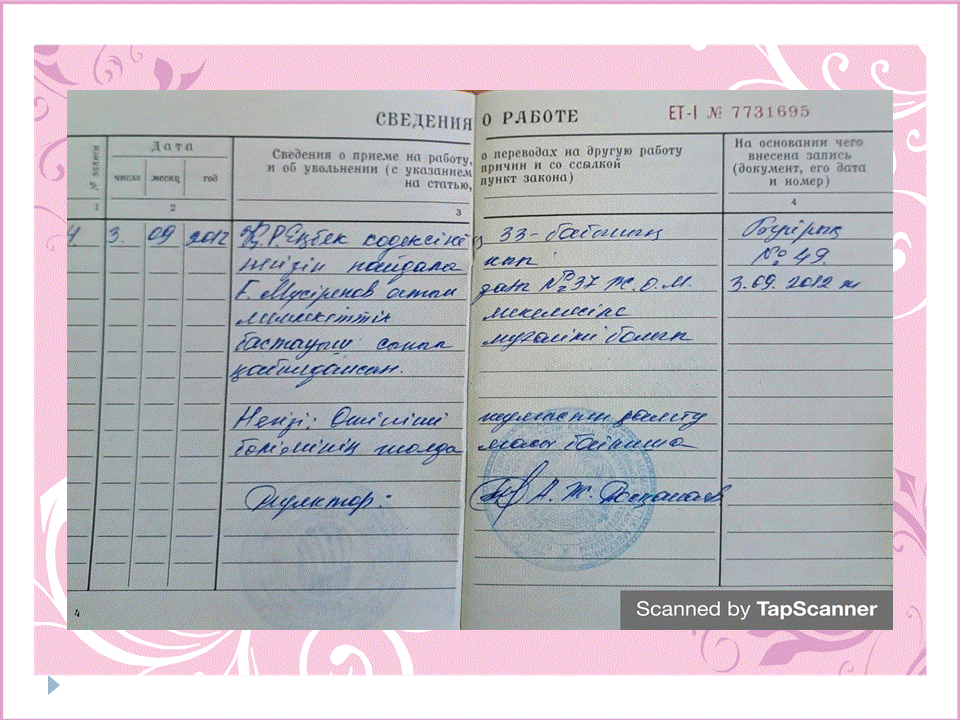 СВЕДЕНИЯ О РАБОТЕ ET-I № 7731695
№ записи
Дата
число месяц год
Сведения о приеме на работу, о переводах на другую работу
и об увольнении (с указанием причин и со ссылкой
на статью, пункт закона)
На основании чего
внесена запись
(документ, его дата
и номер)
1 2 3 4
4 3. 09 2012 Қ.Р.Еңбек кодексінің 33-бабының Бұйрық
негізін пайдаланып №49.
Ғ. Мүсірепов атын дағы №37 Ж.О.М. 3.09.2012 ж
мемлекеттік мекемесіне
бастауыш сынып мұғалімі болып
қабылдансын.
Негізі: жұмыспен қамту
бөлімінің жолдамасы бойынша
Директор: А. Ж.
4
Scanned by TapScanner